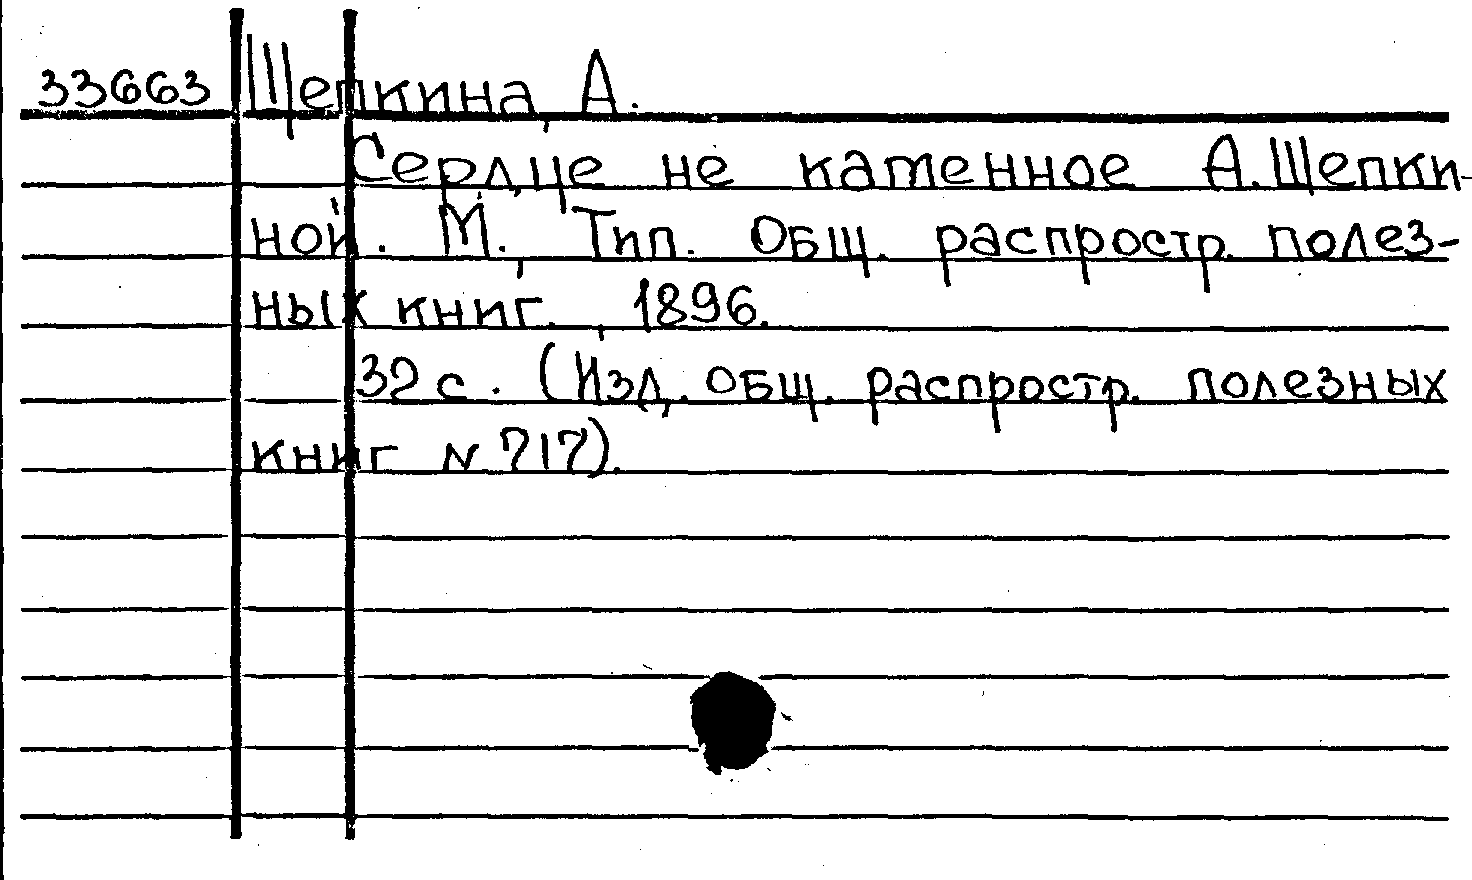 33663 Щепкина, А.
Сердце не каменное А. Щепки-
ной. М., Тип. Общ. распростр. полез-
ных книг., 1896.
32 с. (Изд. общ. распростр. полезных
книг N 717).